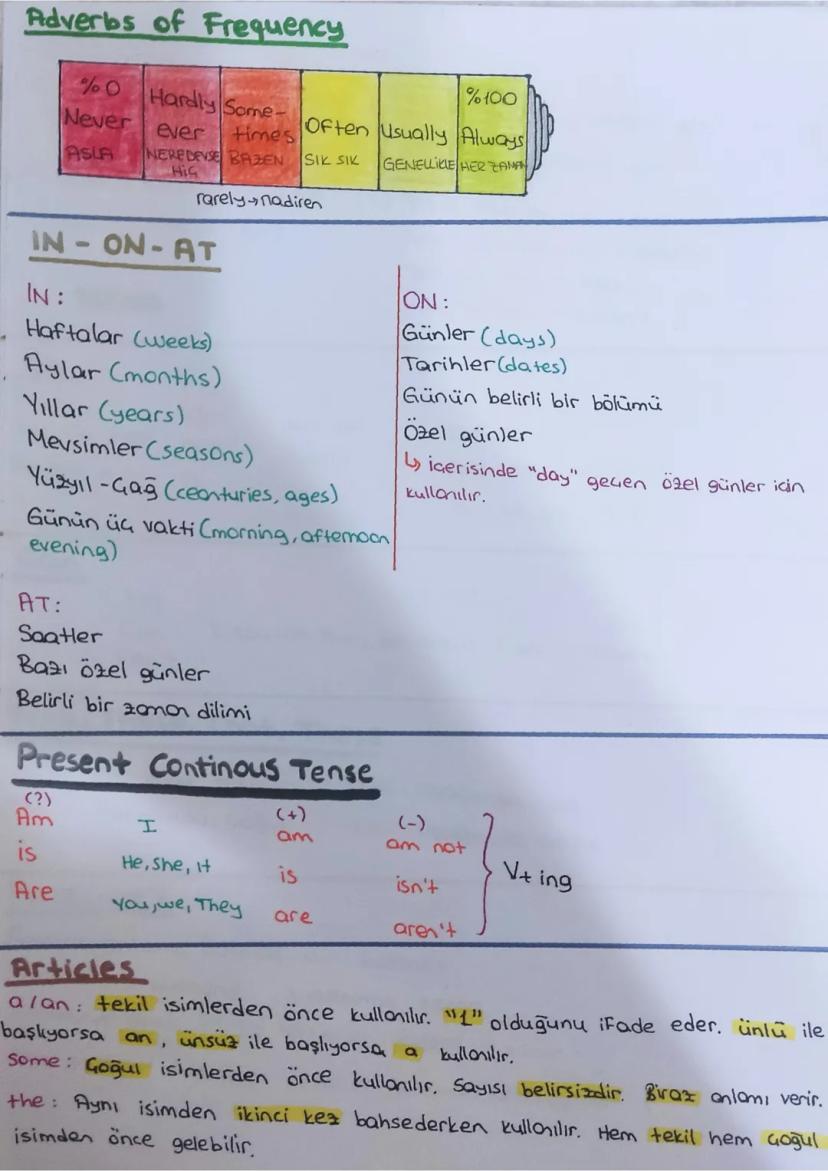 Adverbs of Frequency
%0 Never ASLA
Hardly ever NEREDEYSE HİÇ
Some-times BAZEN
Often SIK SIK
Usually GENELLİKLE
%100 Always HER ZAMAN
rarely→nadiren
IN - ON - AT
IN:
Haftalar (weeks)
Aylar (months)
Yıllar (years)
Mevsimler (seasons)
Yüzyıl - Çağ (ceanturies, ages)
Günün üç vakti (morning, afternoon
evening)
ON:
Günler (days)
Tarihler (dates)
Günün belirli bir bölümü
Özel günler
↳ içerisinde "day" geçen özel günler için
kullanılır.
AT:
Saatler
Bazı özel günler
Belirli bir zaman dilimi
Present Continous Tense
(?) (+) (-)
Am I am am not
is He, She, It is isn't
Are You, we, They are aren't
V+ ing
Articles
a/an: tekil isimlerden önce kullanılır. "1" olduğunu ifade eder. ünlü ile
başlıyorsa an, ünsüz ile başlıyorsa a kullanılır.
some: Çoğul isimlerden önce kullanılır. Sayısı belirsizdir. Biraz anlamı verir.
the: Aynı isimden ikinci kez bahsederken kullanılır. Hem tekil hem çoğul
isimden önce gelebilir.